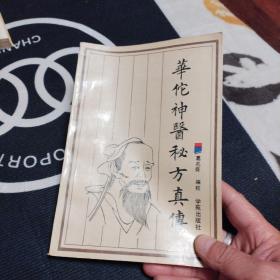 華佗神醫秘方真傳
编校
学苑出版社
CHANN
PORT